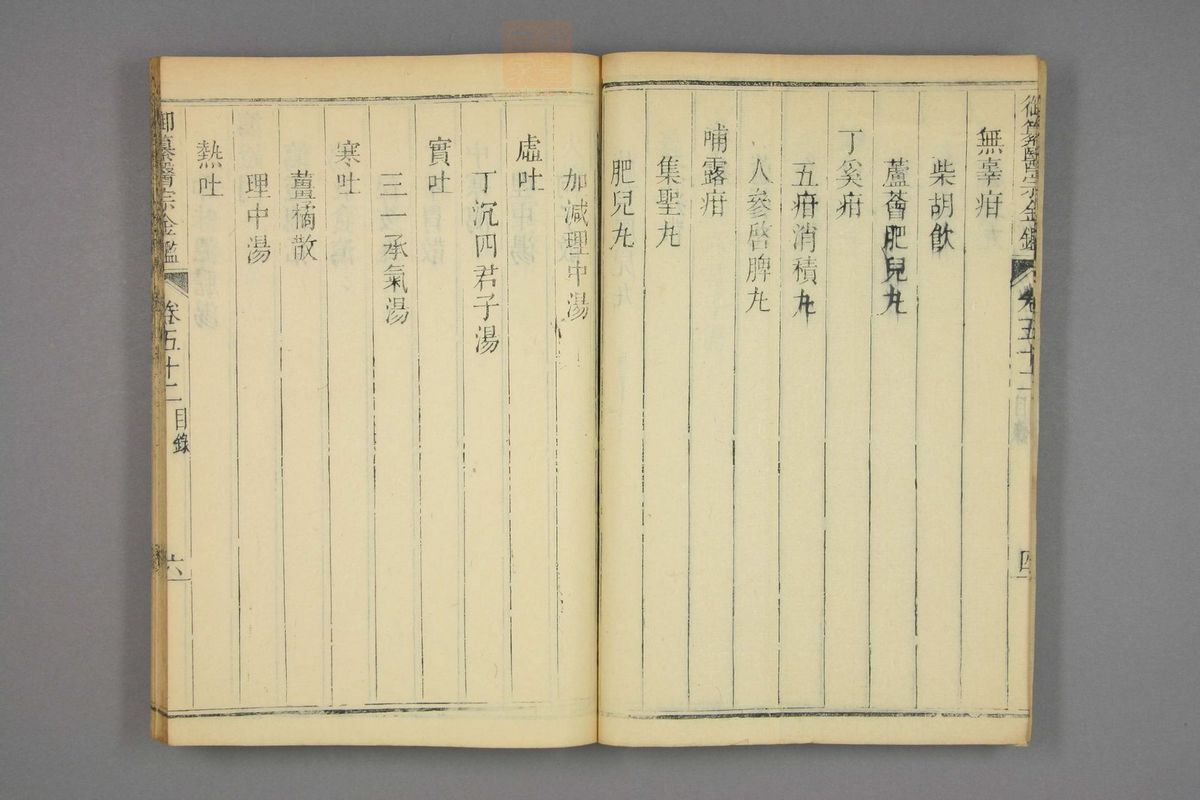 御纂醫宗金鑑 卷五十二 目錄 四
無辜疳
柴胡飲
蘆薈肥兒九
丁奚疳
五疳消積九
人參啓脾九
哺露疳
集聖九
肥兒九
加減理中湯
虛吐
丁沉四君子湯
實吐
三一承氣湯
寒吐
薑橘散
理中湯
熱吐
御纂醫宗金鑑 卷五十二 目錄 六